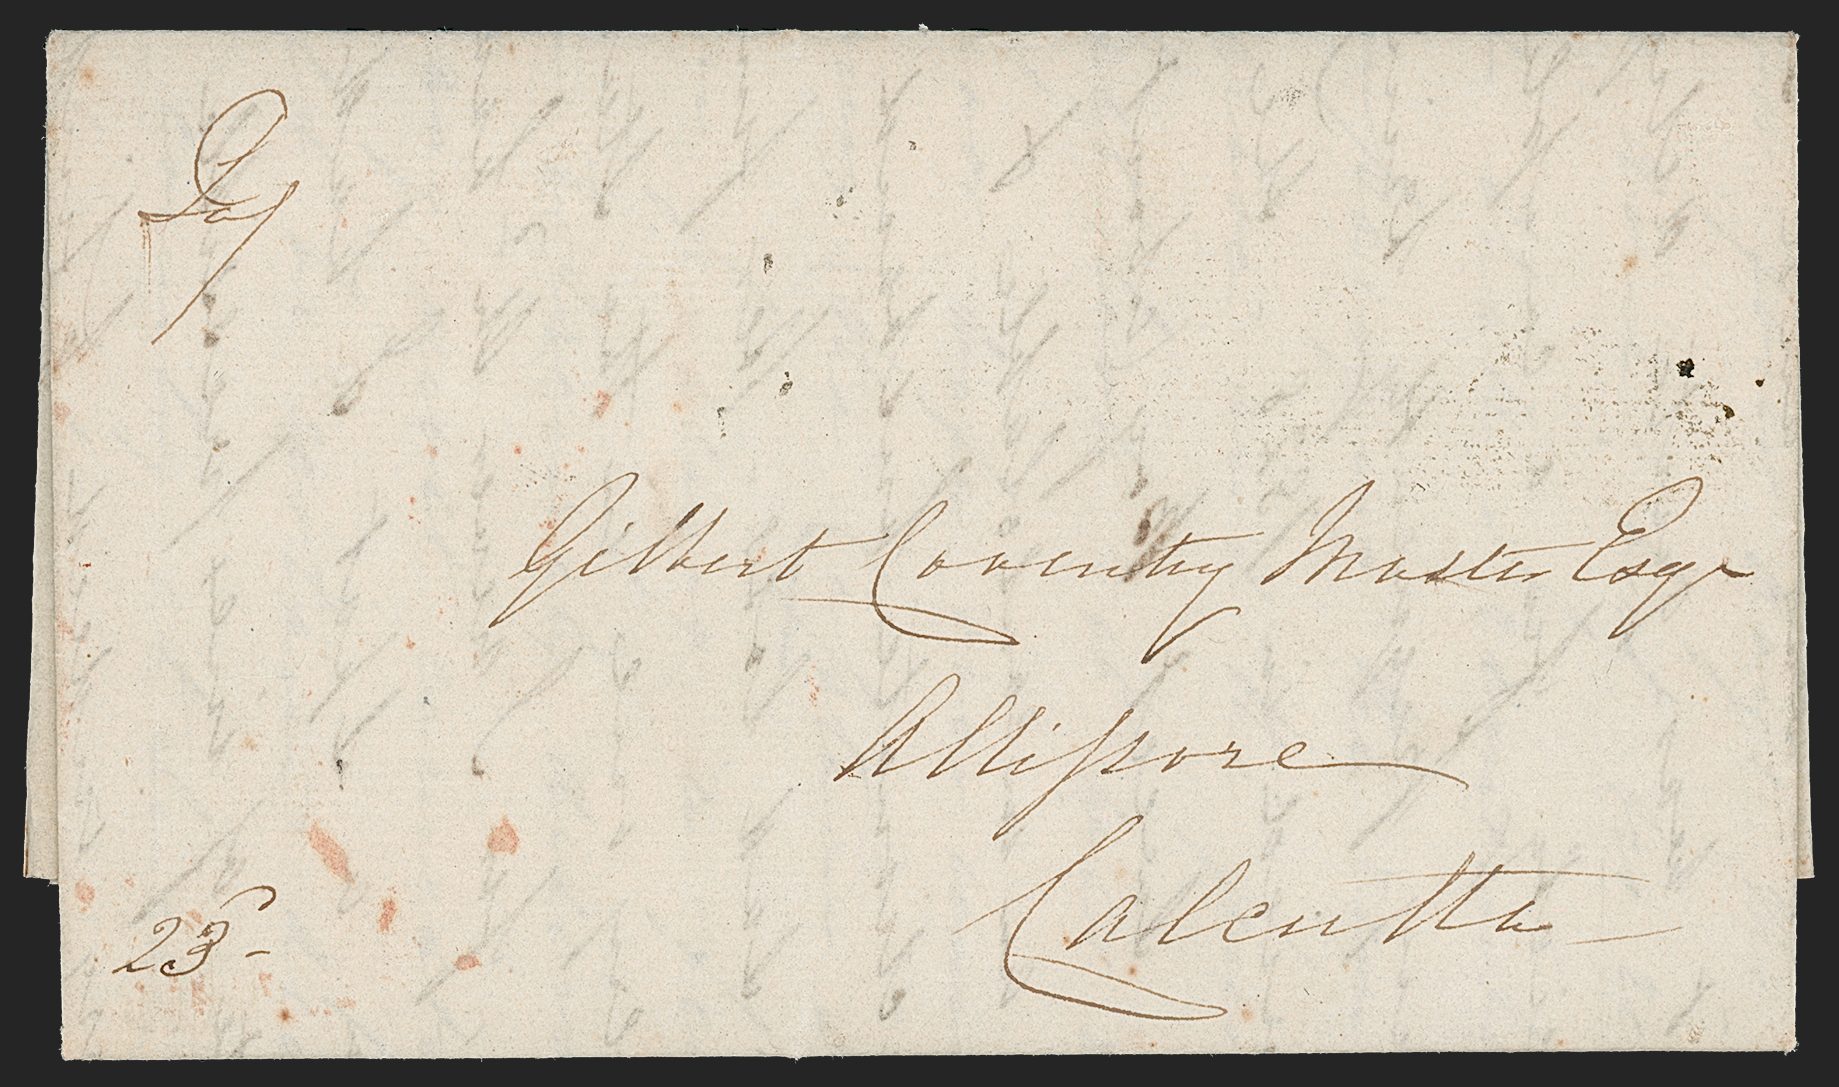 Gilbert Coventry Master Esqr
Allipore
Calcutta
23